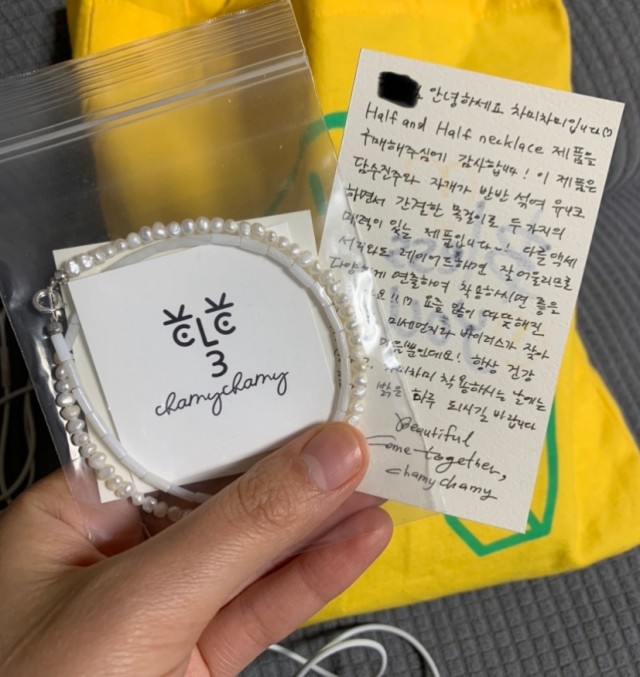 chamychamy
안녕하세요 차미차미입니다♡
Half and Half necklace 제품을
구매해주심에 감사합니다! 이 제품은
담수진주와 자개가 반반 섞여 유니크
하면서 간결한 목걸이로 두가지의
매력이 있는 제품입니다~! 다른 악세
서리와도 레이어드하면 잘어울리므로
다양하게 연출하여 착용하시면 좋을
요!! 요즘 많이 따뜻해진
미세먼지와 바이러스가 잦아
뿐인데요! 항상 건강
차미차미 착용하시는 날에는
밝은 하루 되시길 바랍니다
Beautiful
Come together,
chamychamy